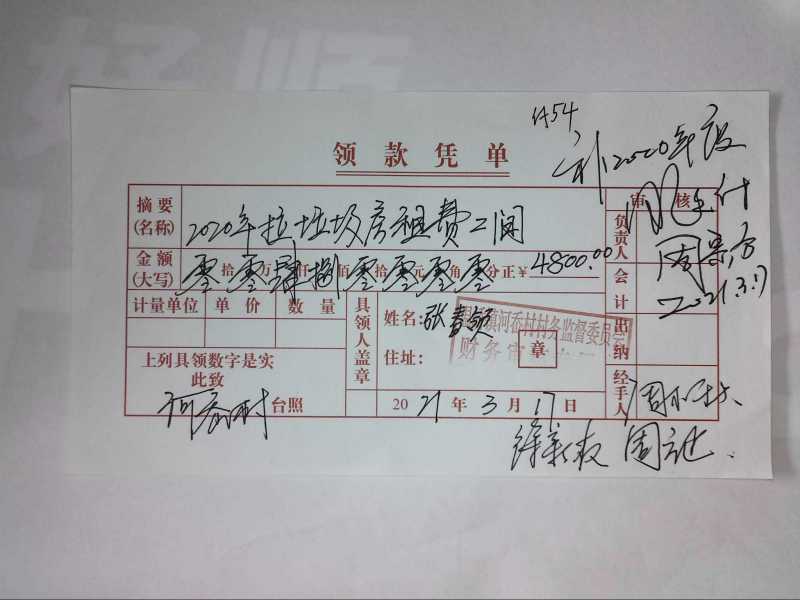 好顺
1454
补2020年度
领款凭单
审核
摘要(名称) 2020年拉垃圾房租费二间
金额(大写) 零拾零万肆仟捌佰零拾零元零角零分正¥4800.00
负责人
会计
2021.3.17
计量单位 单价 数量
具领人盖章
姓名:张春
镇河乔村村务监督委员会
财务审
住址:
章
出纳
上列具领数字是实
此致
河乔村台照
2021年3月17日
经手人
徐新友 周